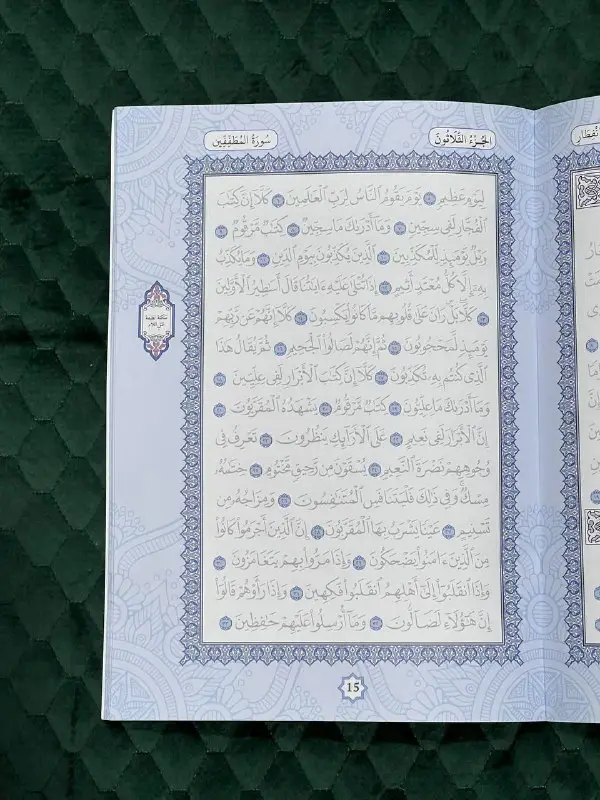 الجُزءُ الثَّلَاثُونَ
سُورَةُ المُطَفِّفِين
لِيَوْمٍ عَظِيمٍ يَوْمَ يَقُومُ ٱلنَّاسُ لِرَبِّ ٱلْعَٰلَمِينَ كَلَّآ إِنَّ كِتَٰبَ
ٱلْفُجَّارِ لَفِى سِجِّينٍ وَمَآ أَدْرَىٰكَ مَا سِجِّينٌ كِتَٰبٌ مَّرْقُومٌ
وَيْلٌ يَوْمَئِذٍ لِّلْمُكَذِّبِينَ ٱلَّذِينَ يُكَذِّبُونَ بِيَوْمِ ٱلدِّينِ وَمَا يُكَذِّبُ
بِهِۦٓ إِلَّا كُلُّ مُعْتَدٍ أَثِيمٍ إِذَا تُتْلَىٰ عَلَيْهِ ءَايَٰتُنَا قَالَ أَسَٰطِيرُ ٱلْأَوَّلِينَ
كَلَّا بَلْ رَانَ عَلَىٰ قُلُوبِهِم مَّا كَانُوا۟ يَكْسِبُونَ كَلَّآ إِنَّهُمْ عَن رَّبِّهِمْ
يَوْمَئِذٍ لَّمَحْجُوبُونَ ثُمَّ إِنَّهُمْ لَصَالُوا۟ ٱلْجَحِيمِ ثُمَّ يُقَالُ هَٰذَا
ٱلَّذِى كُنتُم بِهِۦ تُكَذِّبُونَ كَلَّآ إِنَّ كِتَٰبَ ٱلْأَبْرَارِ لَفِى عِلِّيِّينَ
وَمَآ أَدْرَىٰكَ مَا عِلِّيُّونَ كِتَٰبٌ مَّرْقُومٌ يَشْهَدُهُ ٱلْمُقَرَّبُونَ
إِنَّ ٱلْأَبْرَارَ لَفِى نَعِيمٍ عَلَى ٱلْأَرَآئِكِ يَنظُرُونَ تَعْرِفُ فِى
وُجُوهِهِمْ نَضْرَةَ ٱلنَّعِيمِ يُسْقَوْنَ مِن رَّحِيقٍ مَّخْتُومٍ خِتَٰمُهُۥ
مِسْكٌ وَفِى ذَٰلِكَ فَلْيَتَنَافَسِ ٱلْمُتَنَٰفِسُونَ وَمِزَاجُهُۥ مِن
تَسْنِيمٍ عَيْنًا يَشْرَبُ بِهَا ٱلْمُقَرَّبُونَ إِنَّ ٱلَّذِينَ أَجْرَمُوا۟ كَانُوا۟
مِنَ ٱلَّذِينَ ءَامَنُوا۟ يَضْحَكُونَ وَإِذَا مَرُّوا۟ بِهِمْ يَتَغَامَزُونَ
وَإِذَا ٱنقَلَبُوٓا۟ إِلَىٰٓ أَهْلِهِمُ ٱنقَلَبُوا۟ فَكِهِينَ وَإِذَا رَأَوْهُمْ قَالُوٓا۟
إِنَّ هَٰٓؤُلَآءِ لَضَآلُّونَ وَمَآ أُرْسِلُوا۟ عَلَيْهِمْ حَٰفِظِينَ
سكتة لطيفة
على اللام
15